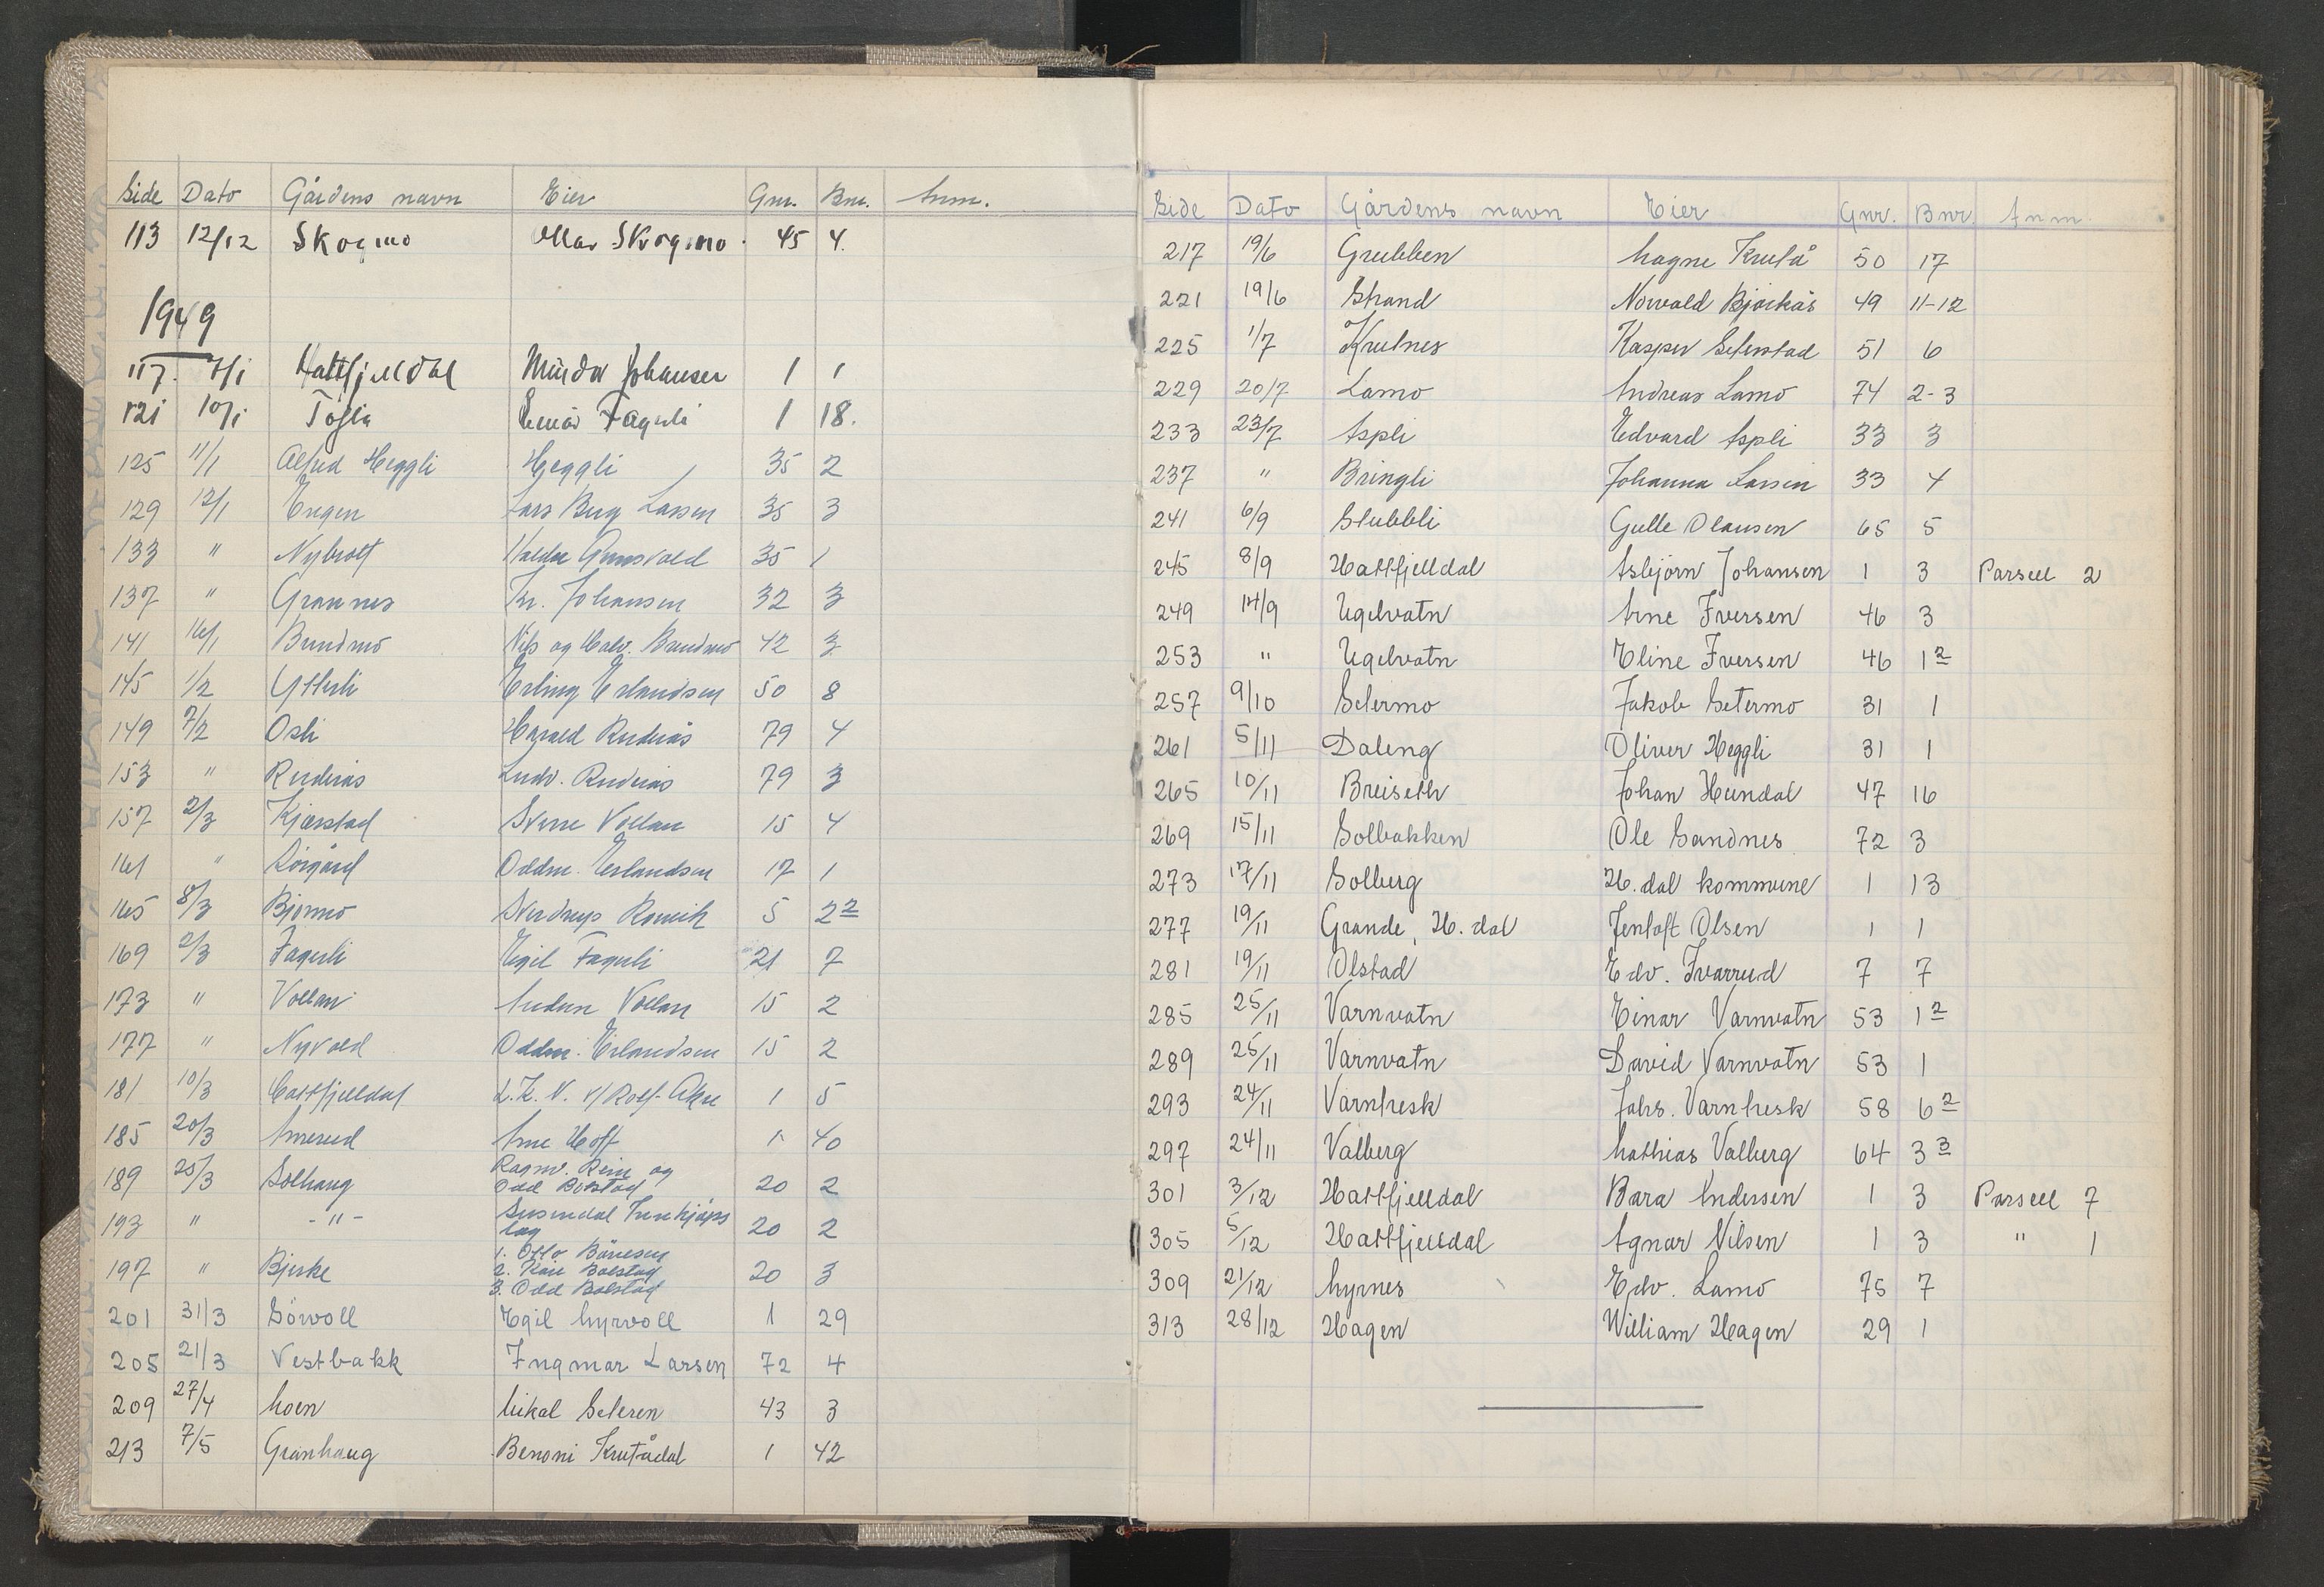 Side Dato Gårdens navn Eier Gnr. Bnr. Anm.
113 12/12 Skogmo Skogmo 45 4.
1949
117. 7/1 Hattfjelldal Johansen 1 1
121 10/1 Fagerli 1 18.
125 11/1 Alfred Heggli Heggli 35 2
129 12/1 Engen Lars Berg Larsen 35 3
133 " Nybrott 35 1
137 " Grannes Kr. Johansen 32 3
141 16/1 Brundmo Nils og Halv. Brundmo 42 3
145 1/2 Ytterli Erling Erlandsen 50 8
149 7/2 Osli Harald Ruderås 79 4
153 " Ruderås Ludv. Ruderås 79 3
157 2/3 Kjærstad Sverre Vollan 15 4
161 " Sörgård Oddm. Erlandsen 17 1
165 8/3 Bjormo Sverdrup 5 2 2
169 2/3 Fagerli Egil Fagerli 21 7
173 " Vollan Audun Vollan 15 2
177 " Nyvold Oddm. Erlandsen 15 2
181 10/3 Hattfjelldal L. L. N. v/ Rolf Åkre 1 5
185 20/3 Amerud Arne Hoff 1 40
189 25/3 Solhaug Ragnv. Reine og
Odd Bolstad 20 2
193 " - " - Susendal Innkjøps
lag 20 2
197 " Bjerke 1. Otto Bånesen
2. Kåre Bolstad 20 3
3. Odd Bolstad
201 31/3 Sörvoll Egil Myrvoll 1 29
205 21/3 Vestbakk Ingmar Larsen 72 4
209 27/4 Moen Mikal Seteren 43 3
213 7/5 Granhaug Benoni Krutådal 1 42
Side Dato Gårdens navn Eier Gnr. Bnr. Anm.
217 19/6 Grubben Magne Krutå 50 17
221 19/6 Strand Norvald Bjørkås 49 11-12
225 1/7 Krutnes Kasper Seterstad 51 6
229 20/7 Lamo Andreas Lamo 74 2-3
233 23/7 Aspli Edvard Aspli 33 3
237 " Bringli Johanna Larsen 33 4
241 6/9 Stubbli Gulle Olausen 65 5
245 8/9 Hattfjelldal Asbjörn Johansen 1 3 Parsell 2
249 14/9 Ugelvatn Arne Iversen 46 3
253 " Ugelvatn Eline Iversen 46 1 2
257 9/10 Setermo Jakob Setermo 31 1
261 5/11 Daleng Oliver Heggli 31 1
265 10/11 Breiseth Johan Hundal 47 16
269 15/11 Solbakken Ole Sandnes 72 3
273 17/11 Solberg H.dal kommune 1 13
277 19/11 Grande, H.dal Jentoft Olsen 1 1
281 19/11 Olstad Edv. Ivarrud 7 7
285 25/11 Varnvatn Einar Varnvatn 53 1 2
289 25/11 Varnvatn David Varnvatn 53 1
293 24/11 Varntresk Johs. Varntresk 58 6 2
297 24/11 Valberg Mathias Valberg 64 3 3
301 3/12 Hattfjelldal Bara Andersen 1 3 Parsell 7
305 5/12 Hattfjelldal Agnar Nilsen 1 3 " 1
309 21/12 Myrnes Edv. Lamo 75 7
313 28/12 Hagen William Hagen 29 1